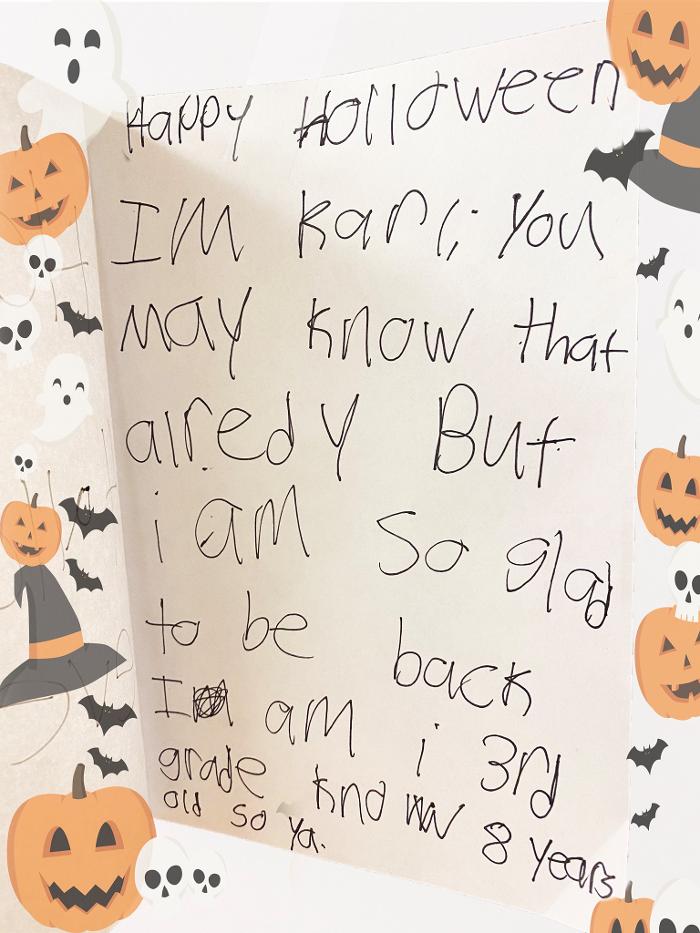 Happy Holloween
IM karli You
may know that
alredy But
i am so glad
to be back
I am i 3rd
grade know 8 years
old so ya.